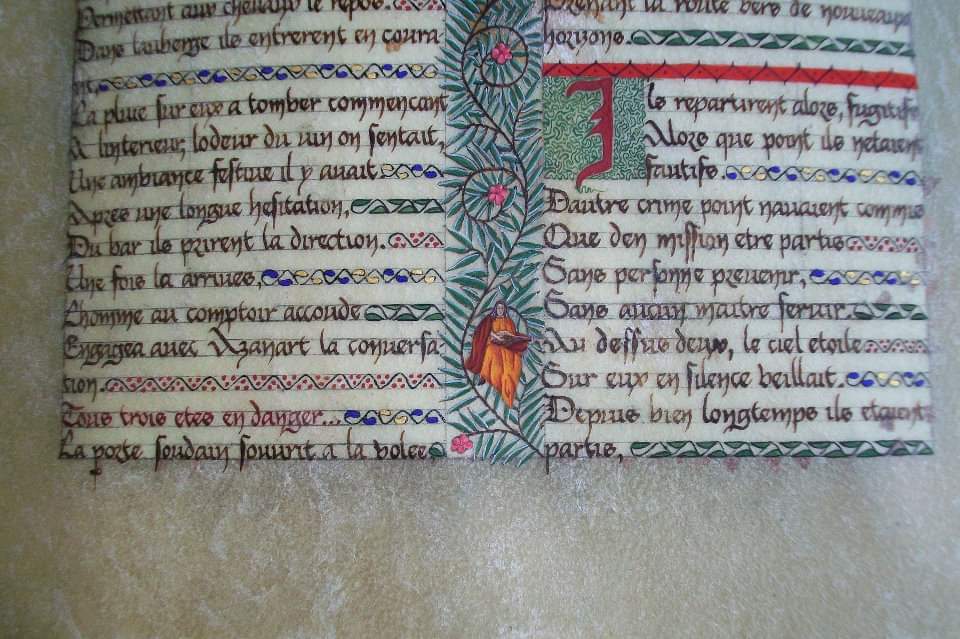 Permettant aux chevaux le repos.
Dans lauberge ils entrerent en coura
nt.
La pluie sur eux a tomber commencant
A linterieur, lodeur du vin on sentait,
Une ambiance festive il y avait.
Apres une longue hesitation,
Du bar ils prirent la direction.
Une fois la arrives,
Lhomme au comptoir accoude
Engagea avec Azanart la conversa
tion.
Tous trois etes en danger...
La porte soudain souvrit a la volee
Prenant la route vers de nouveaux
horizons.
Ils repartirent alors, fugitifs
Alors que point ils netaient
fautifs.
Dautre crime point navaient commis
Que den mission etre partis
Sans personne prevenir,
Sans aucun maitre servir.
Au dessus deux, le ciel etoile
Sur eux en silence veillait.
Depuis bien longtemps ils etaient
partis,